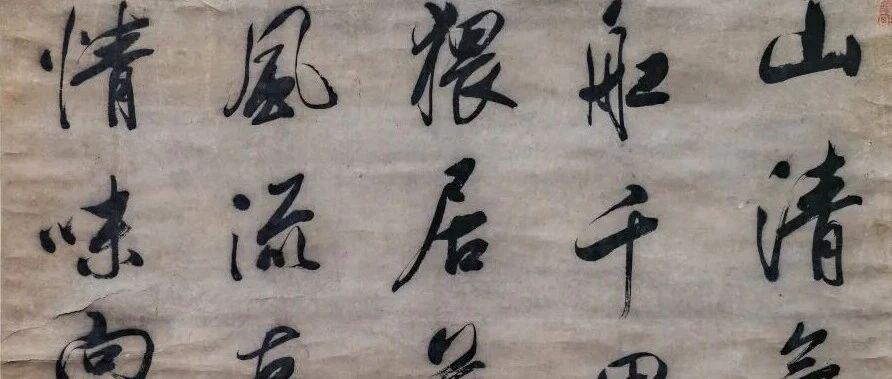 山清
舡千
猥居
風流
情味向